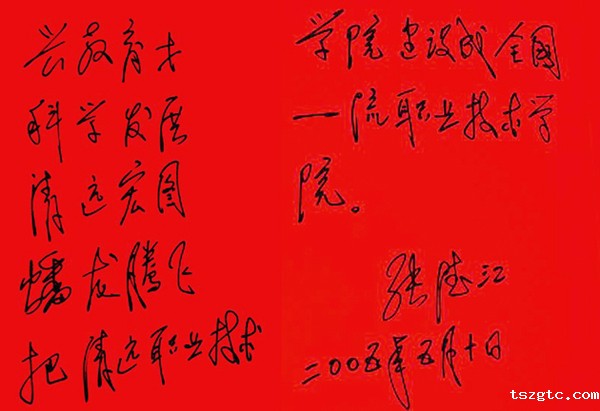 兴教育才
科学发展
清远宏图
蟠龙腾飞
把清远职业技术
学院建设成全国
一流职业技术学
院。
张德江
二00五年五月十日
tszgtc.com